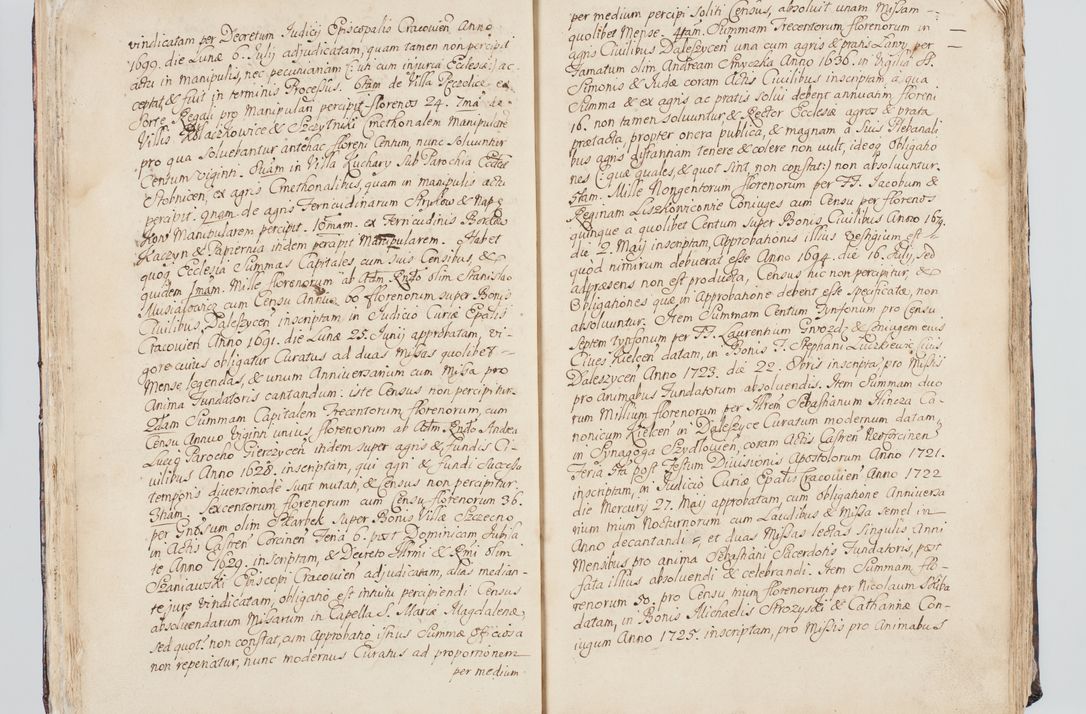 vindicatam per Decretum Judicij Episcopalis Cracovien Anno
1690. die Lunæ 6. Julij adjudicatam, quam tamen non percipit
actu in Manipulis, nec pecuniariam /: uti cum injuria Ecclesiæ :/ ac-
ceptat, & fuit in terminis Processus. 6tam de Villa ex
Sorte Regali pro Manipulari percipit florenos 24. 7mã de
Villis Kołaczkowice & Szczytniki Cmethonalem Manipularem
pro qua Solvebantur antehac floreni Centum, nunc Solvuntur
Centum viginti. 8vam in Villa Kuchary Sub Parochia Eccl
Stobnicen, ex agris Cmethonalibus, quam in manipulis actu
percipit. 9nam de agris Ferricudinarum &
Manipularem percipit. 10mam. ex Ferricudinis
& Papiernia itidem percipit Manipularem. Habet
quoq Ecclesia Summas Capitales cum Suis Censibus, &
quidem 1mam. Mille florenorum ab Adm. Rndo olim Stanislao
Musiałowicz cum Censu Annuo 60 florenorum super Bonis
Civilibus, Daleszycen inscriptam, in Judicio Curiæ Epalis
Cracovien Anno 1691. die Lunæ 25. Junij approbatam, vi-
gore cuius obligatur Curatus ad duas Missas quolibet =
Mense legendas, & unum Anniversarium cum Missa pro
Anima Fundatoris cantandum: iste Census non percipitur.
2dam Summam Capitalem Trecentorum florenorum, cum
Censu Annuo viginti unius florenorum ab Adm Rndo Andrea
Lucig Parocho Gierczycen itidem super agris & fundis Ci-
vilibus Anno 1628. inscriptam, qui agri & fundi Successu
temporis diversimodè sunt mutati, & Census non percipitur.
3tiam. Sexcentorum florenorum cum Censu florenorum 36.
per Gnosum olim Skarbek Super Bonis Villæ Szczecno
in Actis Castren Corcinen Feria 6. post Dominicam Jubila
te Anno 1629. inscriptam, & Decreto Illrmi & Rmi olim
Szaniawski Episcopi Cracovien adjudicatam, alias median-
te jure vindicatam, obligatio est intuitu percipiendi Census
absolvendarum Missarum in Capella S. Mariæ Magdalenæ,
sed quot? non constat, cum Approbatio istius Summæ Officiosa
non reperiatur, nunc modernus Curatus ad proportionem
per medium
per medium percipi soliti Census, absolvit unam Missam =
quolibet Mense. 4tam. Summam Trecentorum florenorum in
agris Civilibus Daleszycen una cum agris & pratis Łany, per
Famatum olim Andream Anno 1636. in Vigilia SS.
Simonis & Judæ coram Actis Civilibus inscriptam, à qua
Summa & ex agris ac pratis solvi debent annuatim floreni
16. non tamen solvuntur, & Rector Ecclesiæ agros & prata
prætacta, propter onera publica, & magnam à Suis Plebanali
bus agris distantiam tenere & colere non vult, ideoq Obligatio
nes /: quæ quales, & quot sint, non constat :/ non absolvuntur.
5tam. Mille Nongentorum florenorum per FF. Jacobum &
Reginam Liszkowicowie Coniuges cum Censu per florenos
quinque à quolibet Centum Super Bonis Civilibus Anno 169.
die 2. Maij inscriptam, Approbationis illius vestigium est =
quod nimirum debuerat esse Anno 1694. die 16. Julij, sed
adpræsens non est producta, Census hic non percipitur, &
Obligationes quæ in Approbatione debent esse specificatæ, non
absolvuntur. Item Summam Centum Tynfonum pro Censu
Septem tynfonum per FF. Laurentium Gwozdz & Coniugem eius
Cives Kielcen datam, in Bonis F. Stephani Civis
Daleszycen Anno 1723. die 22. Obris inscripta, pro Missis
pro animabus Fundatorum absolvendis. Item Summam duo
rum Millium florenorum per Illrem Sebastianum Hinczà Ca-
nonicum Kielcen in Daleszyce Curatum modernum datam,
in Synagoga Szydłovien, coram Actis Castren Neoforcinen
Feria 5ta post Festum Divisionis Apostolorum Anno 1721.
inscriptam, in Judicio Curiæ Epalis Cracovien Anno 1722
die Mercurij 27. Maij approbatam, cum obligatione Anniversa
rium trium Nocturnorum cum Laudibus & Missa semel in
Anno decantandi =, et duas Missas lectas singulis Anni
Mensibus pro anima Sebastiani Sacerdotis Fundatoris, post
fata illius absolvendi & celebrandi. Item Summam flo-
renorum 50. pro Censu trium florenorum per Nicolaum
datam, in Bonis Michaelis & Catharinæ Con-
iugum Anno 1725. inscriptam, pro Missis pro Animabus